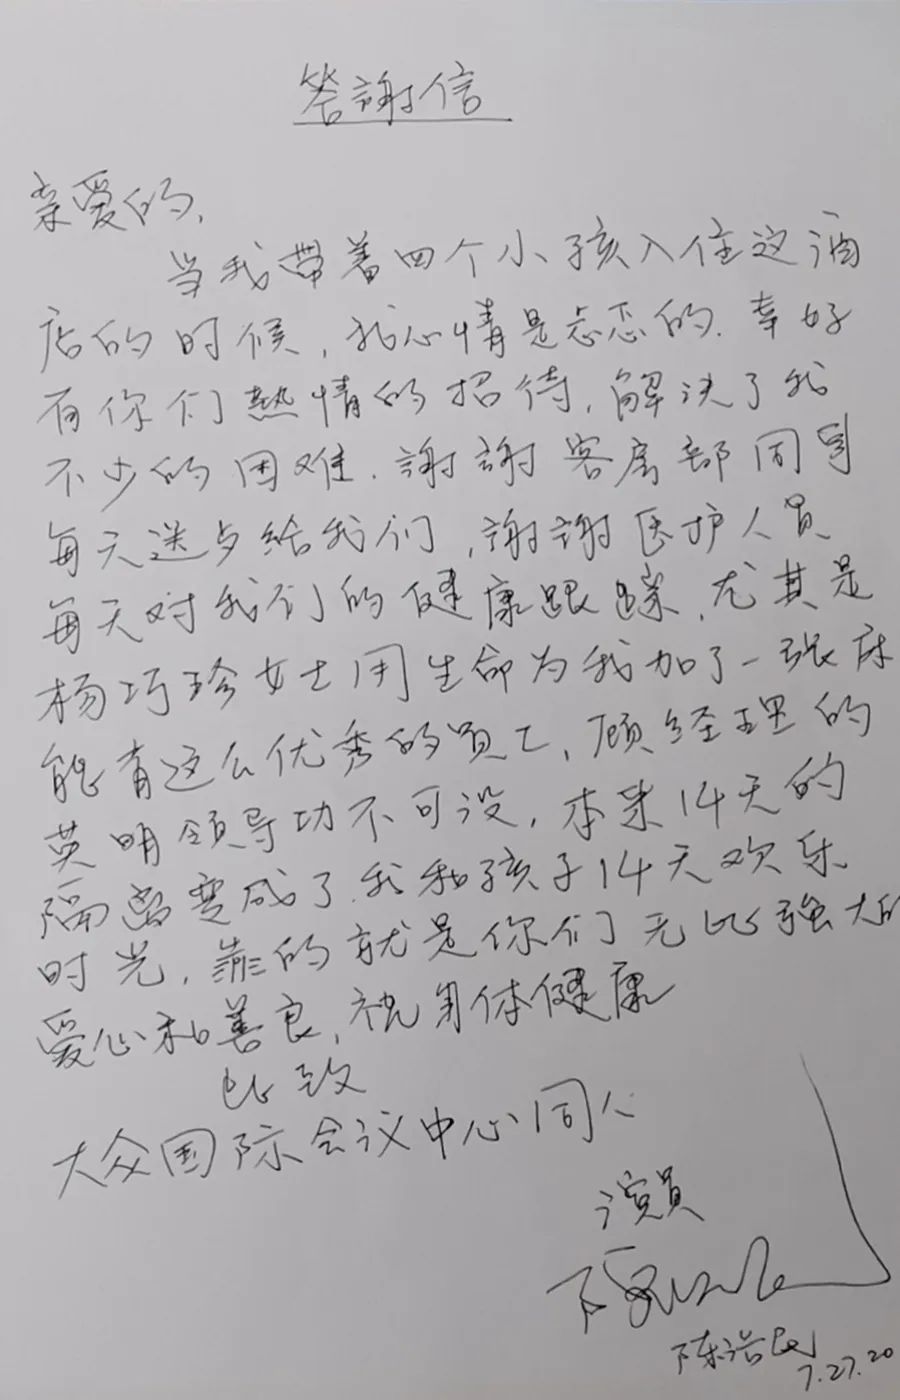 答謝信
亲爱的,
当我带着四个小孩入住这酒
店的时候,我心情是忐忑的.幸好
有你们熱情的招待,解决了我
不少的困难.謝謝客房部同事
每天送歺给我们,謝謝医护人員
每天对我们的健康跟踪,尤其是
杨巧珍女士用生命为我加了一张床
能有这么优秀的員工,顾经理的
英明领导功不可没,本来14天的
隔离变成了我和孩子14天欢乐
时光,靠的就是你们无比強大的
爱心和善良,祝身体健康
此致
大众国际会议中心同人
演員
陈浩民
7.27.20